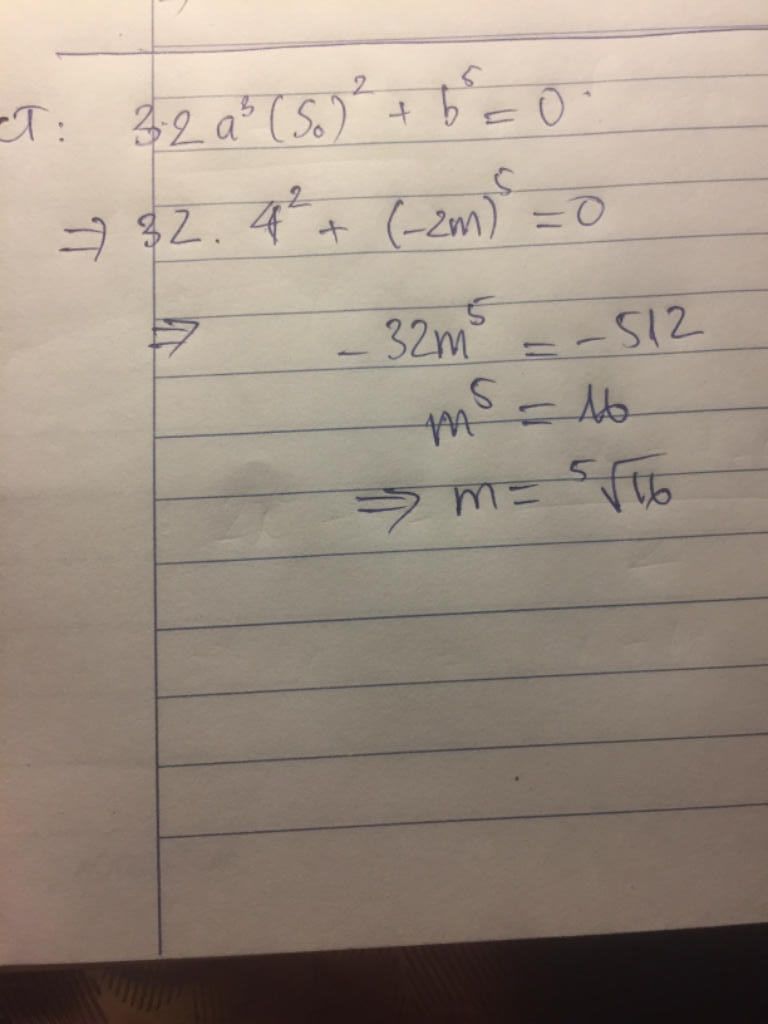 CT: 32a³(S₀)² + b⁵ = 0
⇒ 32. 4² + (-2m)⁵ = 0
⇒ -32m⁵ = -512
m⁵ = 16
⇒ m = ⁵√16